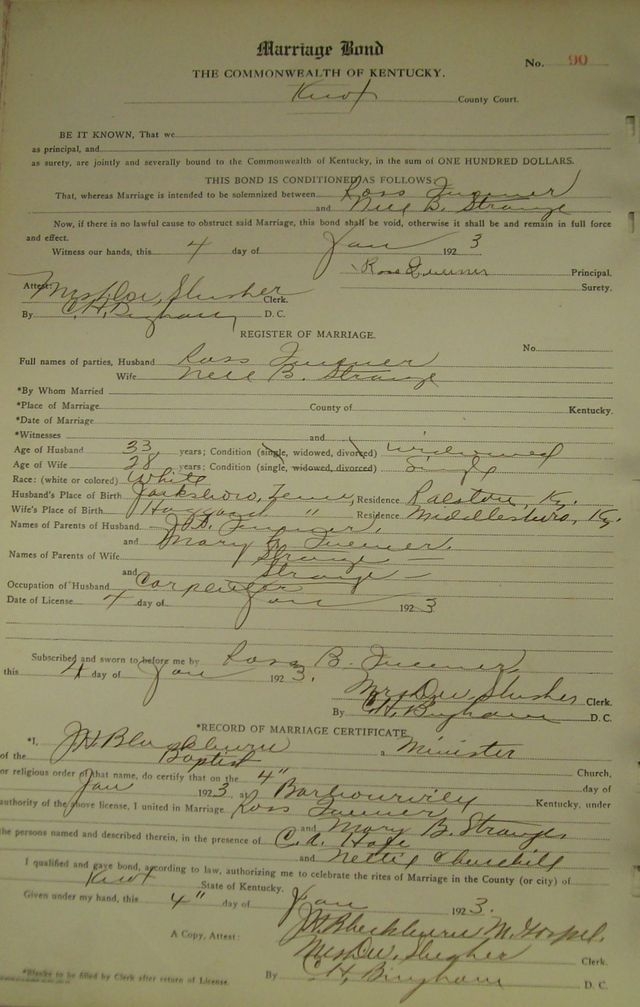 Marriage Bond
No. 90
THE COMMONWEALTH OF KENTUCKY.
Knox County Court.
BE IT KNOWN, That we
as principal, and
as surety, are jointly and severally bound to the Commonwealth of Kentucky, in the sum of ONE HUNDRED DOLLARS.
THIS BOND IS CONDITIONED AS FOLLOWS
That, whereas Marriage is intended to be solemnized between Ross
and Nell B. Strange
Now, if there is no lawful cause to obstruct said Marriage, this bond shall be void, otherwise it shall be and remain in full force
and effect.
Witness our hands, this 4 day of Jan 1923
Ross Principal.
Surety.
Attest: Slusher Clerk.
By C. H. Bingham D. C.
REGISTER OF MARRIAGE.
No.
Full names of parties, Husband Ross
Wife Nell B. Strange
*By Whom Married
*Place of Marriage County of Kentucky.
*Date of Marriage
*Witnesses and
Age of Husband 33 years; Condition (single, widowed, divorced) widowed
Age of Wife 28 years; Condition (single, widowed, divorced) Single
Race: (white or colored) White
Husband's Place of Birth Jacksboro, Tenn, Residence Ralston, Ky.
Wife's Place of Birth " Residence Middlesboro, Ky.
Names of Parents of Husband
and Mary
Names of Parents of Wife Strange —
and Strange —
Occupation of Husband Carpenter
Date of License 4 day of Jan 1923
Subscribed and sworn to before me by Ross B.
this 4 day of Jan 1923.
Slusher Clerk.
By C. H. Bingham D. C.
*RECORD OF MARRIAGE CERTIFICATE
*I, J H Blackburn a Minister
of the Baptist Church,
or religious order of that name, do certify that on the 4" day of
Jan 1923 at Barbourville Kentucky, under
authority of the above license, I united in Marriage Ross
and Mary B. Strange
the persons named and described therein, in the presence of C. A.
and Nettie Churchill
I qualified and gave bond, according to law, authorizing me to celebrate the rites of Marriage in the County (or city) of
Knox State of Kentucky.
Given under my hand, this 4" day of Jan 1923.
J H Blackburn M. Gospel.
A Copy, Attest: Slusher Clerk
By C H Bingham D. C.
*Blanks to be filled by Clerk after return of License.